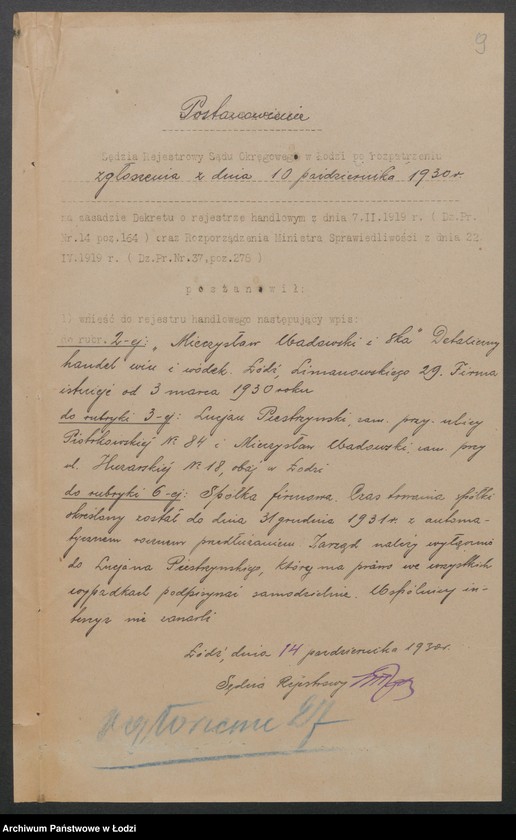 9
Postanowienie
Sędzia Rejestrowy Sądu Okręgowego w Łodzi po rozpatrzeniu
zgłoszenia z dnia 10 października 1930 r.
na zasadzie Dekretu o rejestrze handlowym z dnia 7.II.1919 r. ( Dz.Pr.
Nr.14 poz.164 ) oraz Rozporządzenia Ministra Sprawiedliwości z dnia 22
IV.1919 r. ( Dz.Pr.Nr.37.poz.278 )
postanowił:
1) wnieść do rejestru handlowego następujący wpis:
do rubr. 2-ej: "Mieczysław Wadowski i Ska" Detaliczny
handel win i wódek. Łódź, Limanowskiego 29. Firma
istnieje od 3 marca 1930 roku
do rubryki 3-ej: Lucjan Piestrzyński, zam. przy ulicy
Piotrkowskiej № 84 i Mieczysław Wadowski, zam. przy
ul. Huzarskiej № 18, obaj w Łodzi
do rubryki 6-ej: Spółka firmowa. Czas trwania spółki
określony został do dnia 31 grudnia 1931 r. z automa-
tycznem rocznem przedłużaniem. Zarząd należy wyłącznie
do Lucjana Piestrzyńskiego, który ma prawo we wszystkich
wypadkach podpisywać samodzielnie. Wspólnicy in-
tercyz nie zawarli
Łódź, dnia 14 października 1930 r.
Sędzia Rejestrowy
Ogłoszenie
Archiwum Państwowe w Łodzi